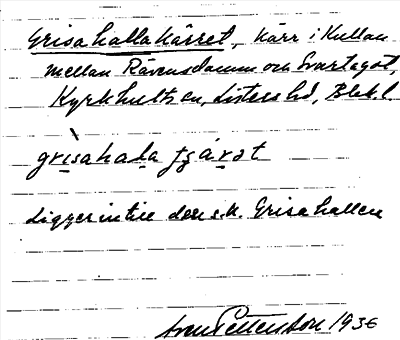 Grisahallakärret, kärr i Kullan
mellan Rävensdamm och Svartagöt,
Kyrkhults sn, Listers hd, Blek. l.
grisahaḷa ʈʂärət
Ligger intill den s.k. Grisahallen
Sven Pettersson 1936